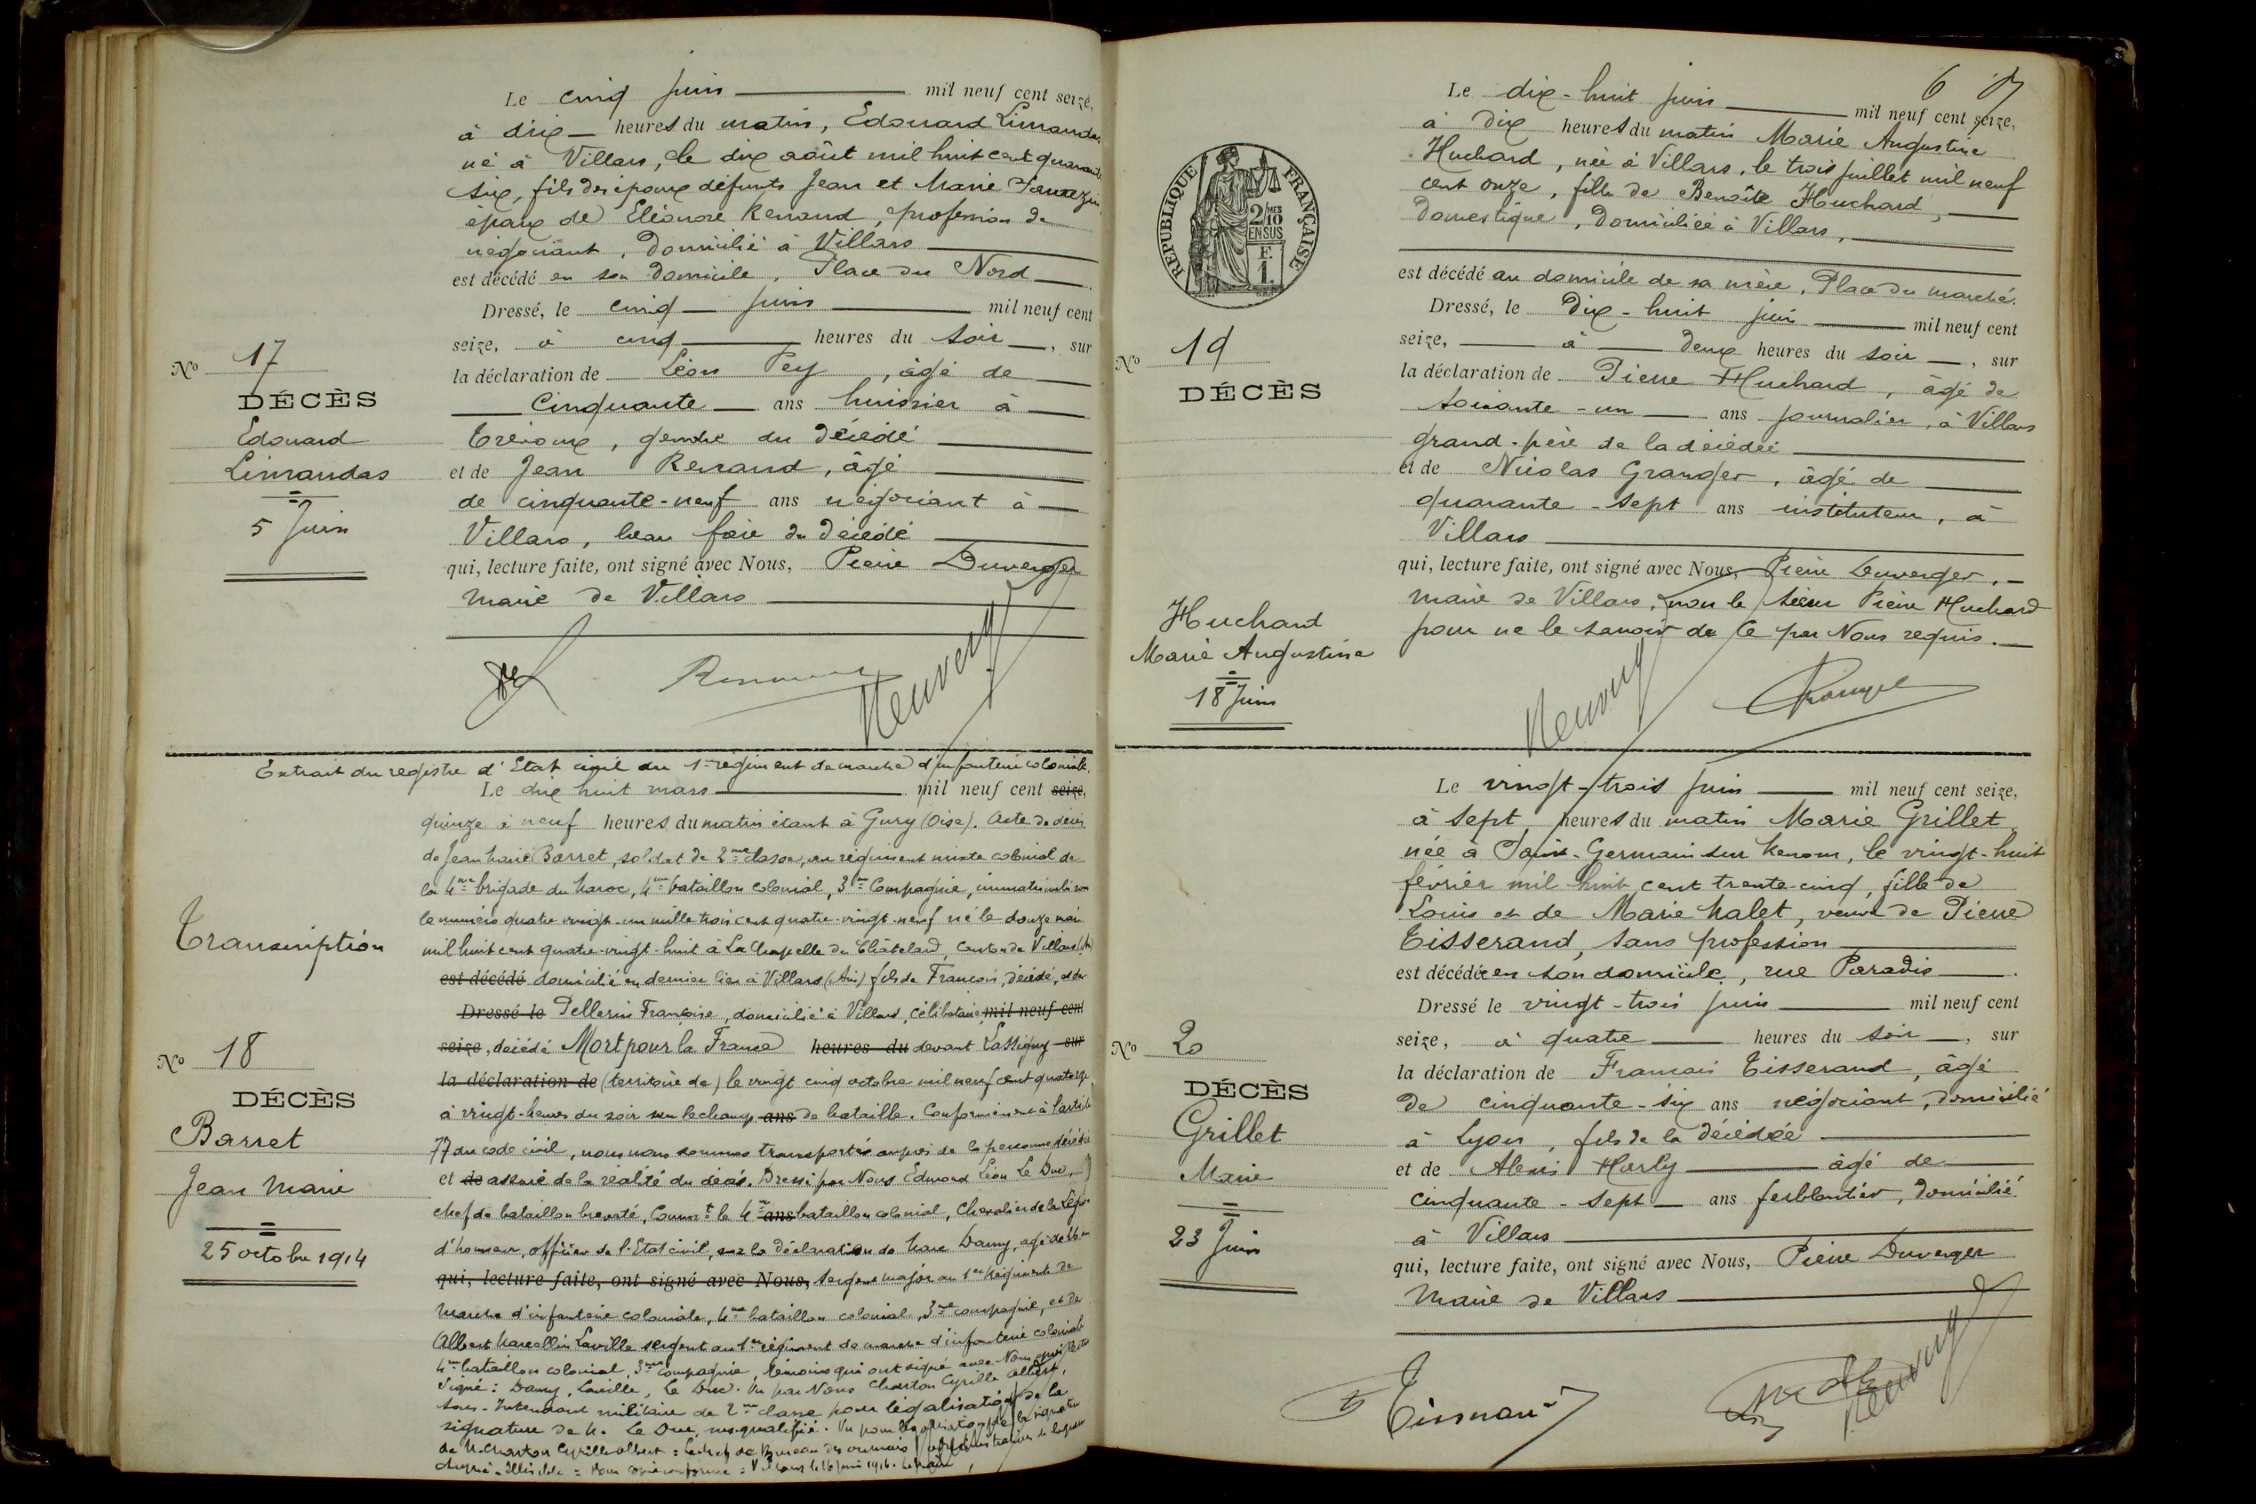 Le cinq juin mil neuf cent seize,
à dix heures du matin, Edouard Limandas
né à Villars, le dix août mil huit cent quarante
six, fils des époux défunts Jean et Marie
époux de Eléonore Renaud, profession de
négociant, domicilié à Villars
est décédé en son domicile, Place du Nord
Dressé, le cinq juin mil neuf cent
seize, à cinq heures du soir, sur
la déclaration de Léon Pey, âgé de
Cinquante ans huissier à
Trévoux, gendre du décédé
et de Jean Renaud, âgé
de cinquante-neuf ans négociant à
Villars, beau frère du décédé
qui, lecture faite, ont signé avec Nous, Pierre Duverger
maire de Villars
No 17
DÉCÈS
Edouard
Limandas
5 Juin
Extrait du registre d'Etat civil du 1er régiment de marche d'infanterie coloniale.
Le dix huit mars mil neuf cent seize,
quinze à neuf heures du matin étant à Gury (Oise). Acte de décès
de Jean Marie Barret, soldat de 2me classe, au régiment mixte colonial de
la 4me brigade du Maroc, 4me bataillon colonial, 3me Compagnie, immatriculé sous
le numéro quatre vingt-un mille trois cent quatre-vingt-neuf né le douze mai
mil huit cent quatre-vingt-huit à La Chapelle du Châtelard, canton de Villars (Ain)
est décédé domicilié en dernier lieu à Villars (Ain) fils de François, décédé, et de
Dressé le Pellerin Françoise, domicilié à Villars, célibataire mil neuf cent
seize, décédé Mort pour la France heures du devant Lassigny sur
la déclaration de (territoire de) le vingt cinq octobre mil neuf cent quatorze,
à vingt-heures du soir sur le champ ans de bataille. Conformément à l'article
77 du code civil, nous nous sommes transportés auprès de la personne décédée
et de assuré de la réalité du décès. Dressé par Nous Edmond Léon Le Duc,
chef de bataillon breveté, Commt le 4me ans bataillon colonial, Chevalier de la Légion
d'honneur, officier de l'Etat civil, sur la déclaration de Marc Damy, âgé de
qui, lecture faite, ont signé avec Nous, sergent major au 1er Régiment de
marche d'infanterie coloniale, 4me bataillon colonial, 3me compagnie, et de
Albert Marcellin Laville sergent au 1er régiment de marche d'infanterie coloniale
4me bataillon colonial, 3me compagnie, témoins qui ont signé avec Nous
Signé: Damy, Laville, Le Duc. Vu par Nous Charton Cyrille Albert,
Sous-Intendant militaire de 2me classe pour légalisation de la
signature de M. Le Duc, susqualifié. Vu pour légalisation de la signature
de M. Charton Cyrille Albert: Le chef de Bureau des archives administratives
Pour copie conforme: Villars le 16 juin 1916. Le Maire
Transcription
No 18
DÉCÈS
Barret
Jean Marie
25 octobre 1914
6
Le dix-huit juin mil neuf cent seize,
à Dix heures du matin Marie Augustine
Huchard, née à Villars, le trois juillet mil neuf
cent onze, fille de Benoîte Huchard,
domestique, domiciliée à Villars,
est décédé au domicile de sa mère, Place du marché.
Dressé, le Dix-huit juin mil neuf cent
seize, à deux heures du soir, sur
la déclaration de Pierre Huchard, âgé de
soixante-un ans journalier, à Villars
grand-père de la décédée
et de Nicolas Granger, âgé de
quarante-sept ans instituteur, à
Villars
qui, lecture faite, ont signé avec Nous, Pierre Duverger,
maire de Villars, non le sieur Pierre Huchard
pour ne le savoir de ce par Nous requis.
RÉPUBLIQUE FRANÇAISE
2/10 MES
EN SUS
1 F.
No 19
DÉCÈS
Huchard
Marie Augustine
18 Juin
Le vingt-trois juin mil neuf cent seize,
à sept heures du matin Marie Grillet
née à Saint-Germain sur Renom, le vingt-huit
février mil huit cent trente-cinq, fille de
Louis et de Marie Malet, veuve de Pierre
Tisserand, sans profession
est décédée en son domicile, rue Paradis
Dressé le vingt-trois juin mil neuf cent
seize, à quatre heures du soir, sur
la déclaration de François Tisserand, âgé
de cinquante-six ans négociant, domicilié
à Lyon, fils de la décédée
et de Alexis Harly âgé de
cinquante-sept ans ferblantier, domicilié
à Villars
qui, lecture faite, ont signé avec Nous, Pierre Duverger
maire de Villars
No 20
DÉCÈS
Grillet
Marie
23 Juin